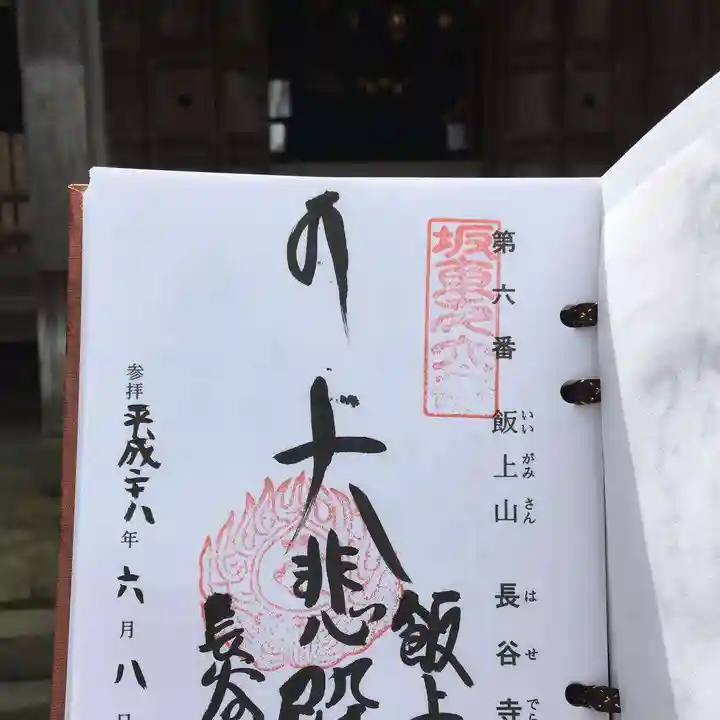 第六番 飯上山 長谷寺
いいがみさん はせでら
坂東
飯上
大悲殿
長谷
参拝 平成二十八年 六月八日